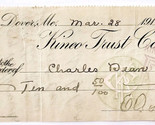 Dover, Me. Mar. 28 191
Kineo Trust Co
to the
order of Charles Dean
Ten and 60/100
60